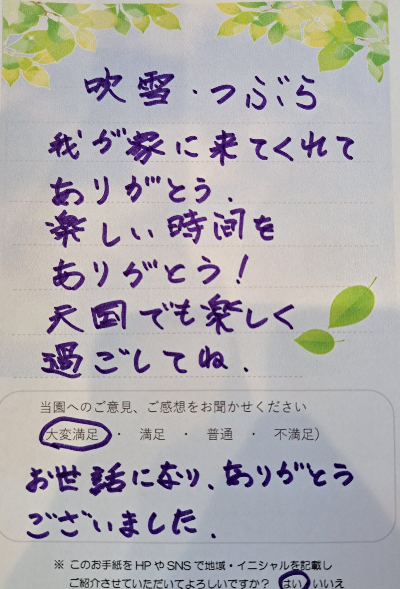 吹雪・つぶら
我が家に来てくれて
ありがとう.
楽しい時間を
ありがとう!
天国でも楽しく
過ごしてね.
当園へのご意見、ご感想をお聞かせください
大変満足 ・ 満足 ・ 普通 ・ 不満足)
お世話になり、ありがとう
ございました.
※ このお手紙をHPやSNSで地域・イニシャルを記載し
ご紹介させていただいてよろしいですか? はい・いいえ